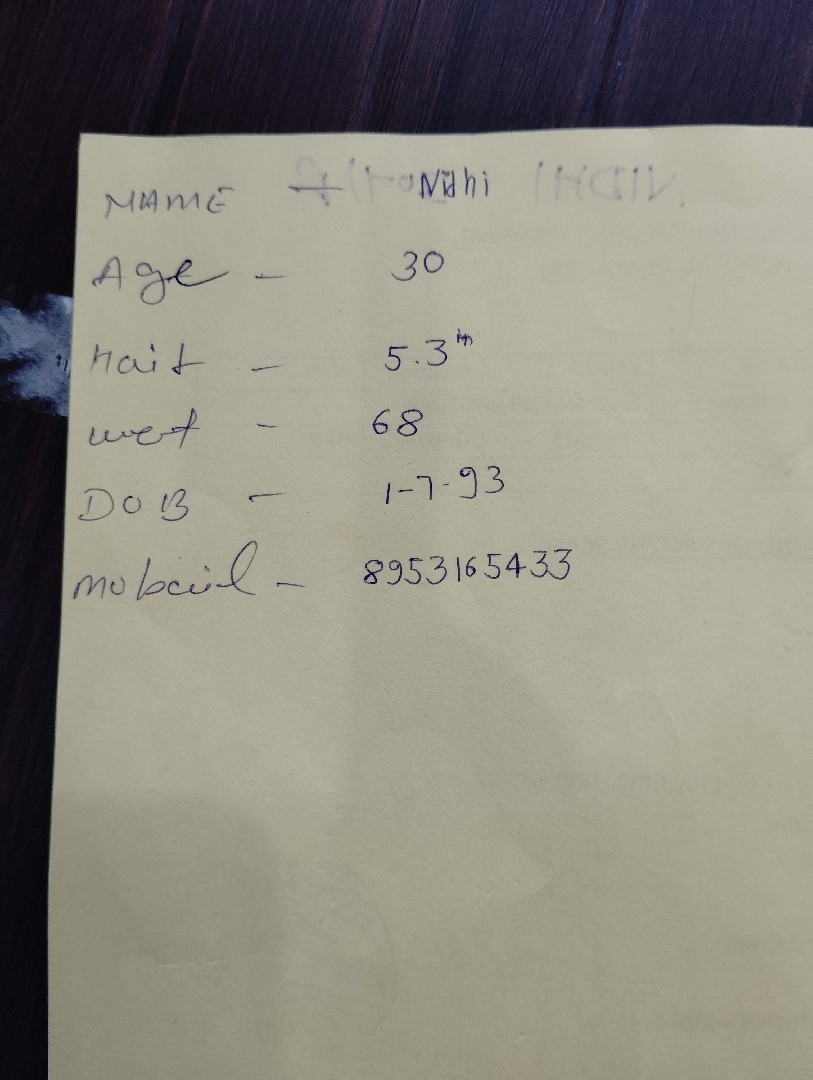 NAME - Nidhi
Age - 30
Hait - 5.3 in
wet - 68
DOB - 1-7-93
mobail - 8953165433